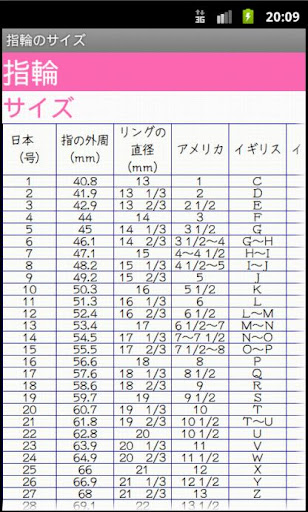 3G 20:09
指輪のサイズ
指輪
サイズ
日本（号） 指の外周（mm） リングの直径（mm） アメリカ イギリス イ
1 40.8 13 1 C
2 41.9 13 1/3 2 D
3 42.9 13 2/3 2 1/2 E
4 44 14 3 F
5 45 14 1/3 3 1/2 G
6 46.1 14 2/3 3 1/2～4 G～H
7 47.1 15 4～4 1/2 H～I
8 48.2 15 1/3 4 1/2～5 I～J
9 49.2 15 2/3 5 J
10 50.3 16 5 1/2 K
11 51.3 16 1/3 6 L
12 52.4 16 2/3 6 1/2 L～M
13 53.4 17 6 1/2～7 M～N
14 54.5 17 1/3 7～7 1/2 N～O
15 55.5 17 2/3 7 1/2～8 O～P
16 56.6 18 8 P
17 57.6 18 1/3 8 1/2 Q
18 58.6 18 2/3 9 R
19 59.7 19 9 1/2 S
20 60.7 19 1/3 10 T
21 61.8 19 2/3 10 1/2 T～U
22 62.8 20 U
23 63.9 20 1/3 V
24 64.9 20 2/3 11 1/2 W
25 66 21 12 X
26 66.9 21 1/3 12 1/2 Y
27 68 21 2/3 13 Z
28 69.1 22